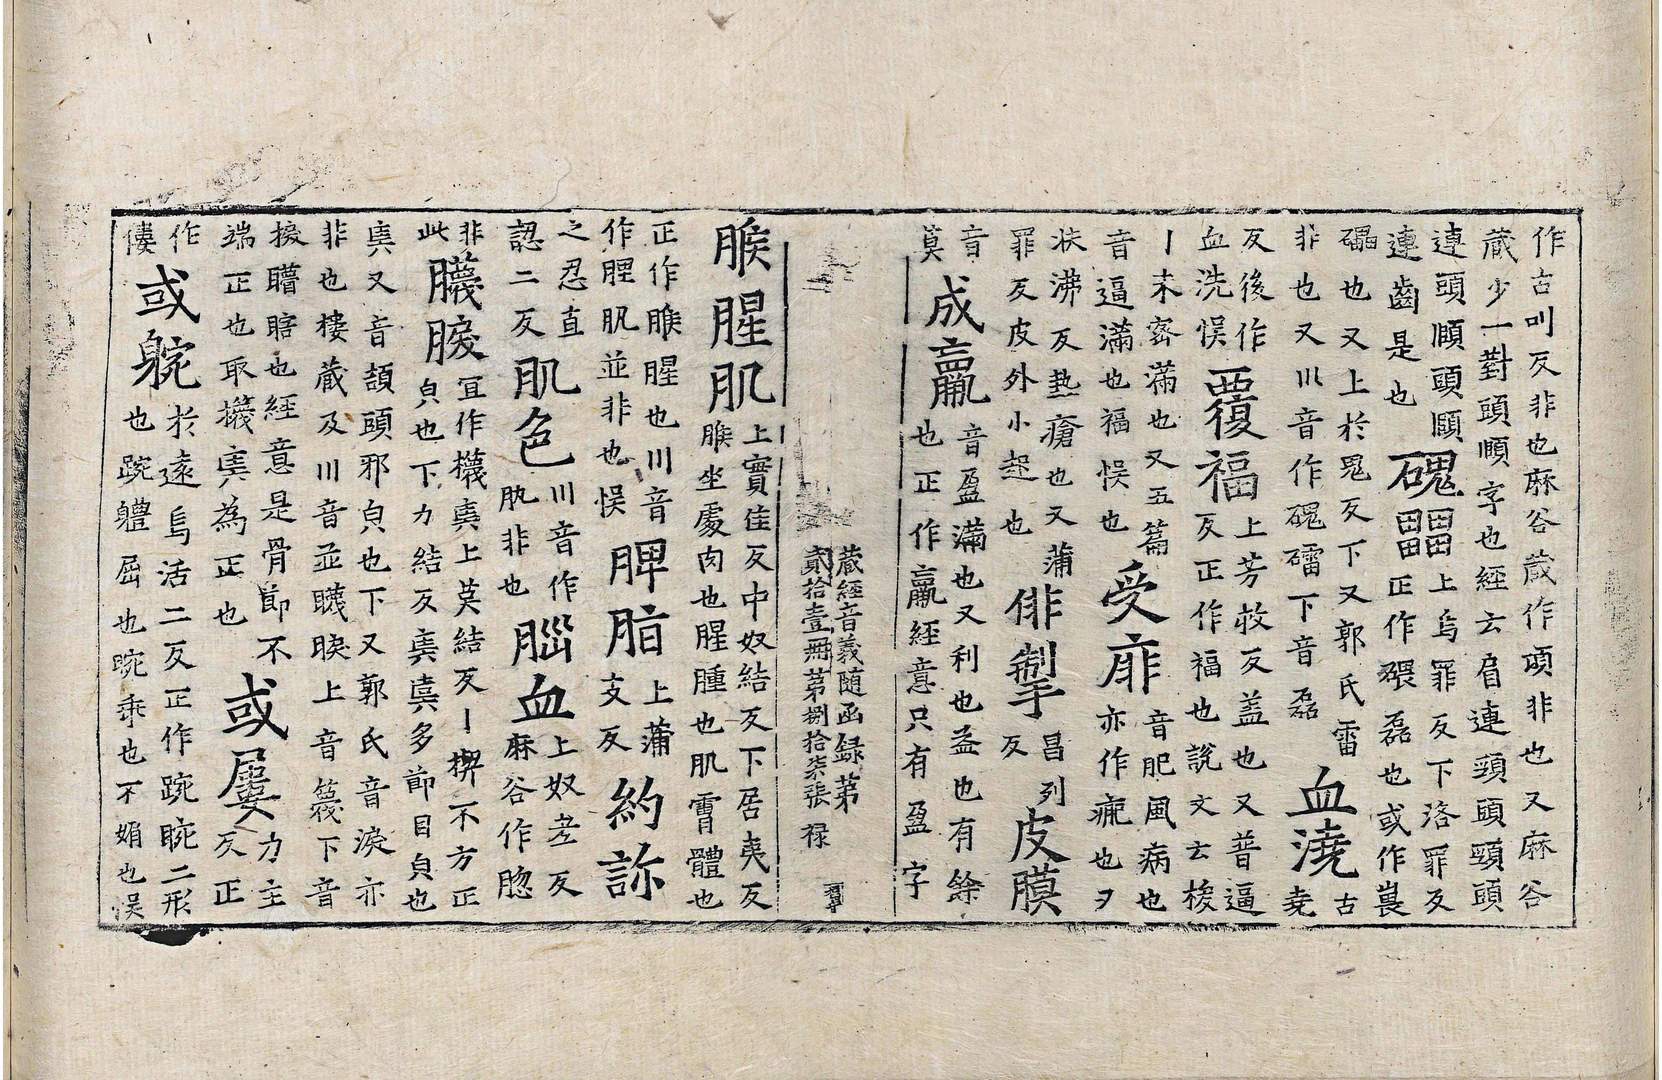 作古叫反非也麻谷嵗作頑非也又麻谷
蔵少一對頭順字也經云眉連頸頭頸頭
連頭順頭頤
連齒是也
磈㽬
上烏罪反下洛罪反
正作磥磊也或作嵔
礧也又上於鬼反下又郭氏雷
非也又川音作磈礌下音磊
血澆
古
堯
反後作
血洗悮
覆福
上芳救反盖也又普逼
反正作福也說文云椱
丨未密滿也又五篇
音逼滿也福悮也
受痱
音肥風病也
亦作疿也又
扶沸反热瘡也又蒲
罪反皮外小起也
俳掣
昌列
反
皮膜
音
莫
成羸
音盈滿也又利也益也有餘
也正作贏經意只有盈字
蔵經音義随函録苐
貳拾壹冊苐捌拾柒張 禄
脄腥肌
上實佳反中奴結反下居夷反
脄坐處肉也腥腫也肌膚體也
正作脽腥也川音
作腥肌並非也悮
脾脂
上蒲
支反
約沵
之忍直
認二反
肌色
川音作
肍非也
腦血
上奴老反
麻谷作𦛁
非
此
䑃䏾
冝作䁾奊上莫結反丨㮰不方正
㒵也下力結反奊䡾多節目㒵也
奊又音頡頭邪㒵也下又郭氏音淚亦
非也樓蔵及川音並䁾睙上音篾下音
捩瞺瞎也經意是骨節不
端正也取櫗奊為正也
或屢
力主
反正
作
僂
或躴
於遠烏活二反正作踠睕二形
也踠軆屈也睕乖也不媚也悮